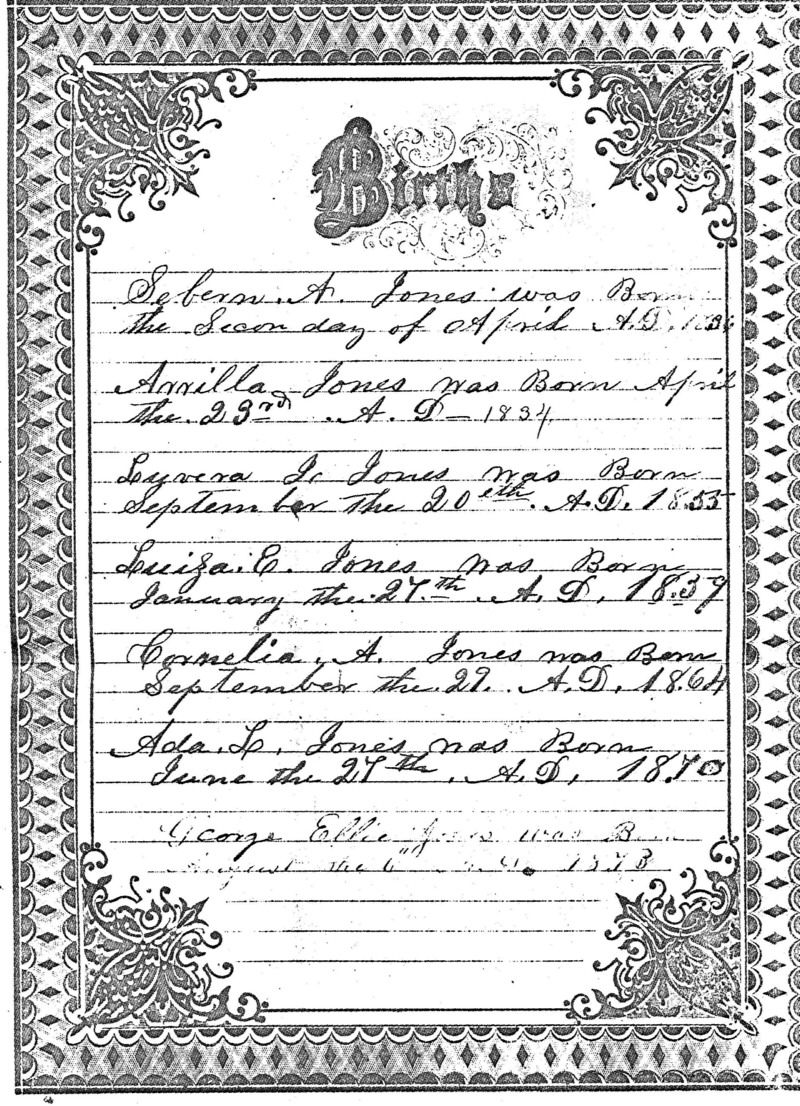 Births
Sebern. A. Jones was Born
the Secon day of April A.D. 1836
Arrilla Jones was Born April
the 23rd. A. D - 1834
Lyvera J. Jones was Born
September the 20eth. A.D. 1855
Luiza. E. Jones was Born
January the 27th. A. D. 1859
Cornelia. A. Jones was Born
September the 29. A.D. 1864
Ada. L. Jones was Born
June the 27th. A.D, 1870
George Ellie Jones was Born
August the 6"